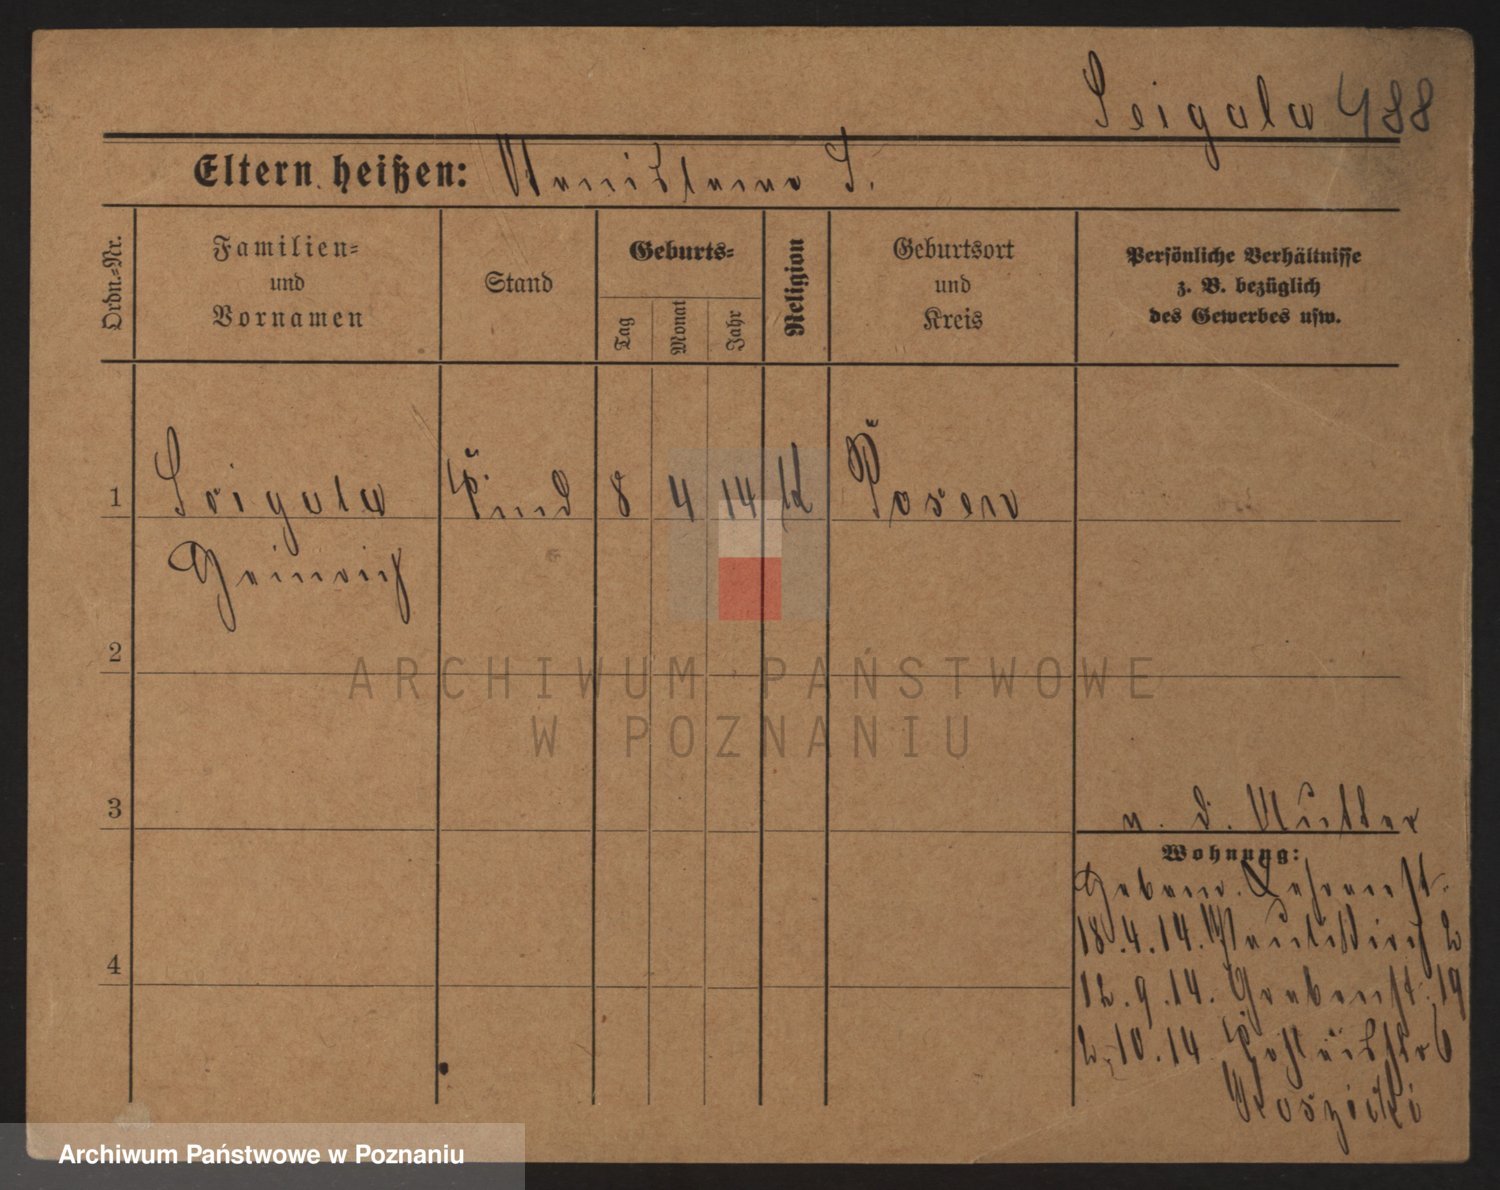 Seigala 488
Eltern heißen: Stanislawa S.
Ordn.=Nr.
Familien=
und
Vornamen
Stand
Geburts=
Tag
Monat
Jahr
Religion
Geburtsort
und
Kreis
Persönliche Verhältnisse
z. B. bezüglich
des Gewerbes usw.
1 Seigala Kind 8 4 14 K Posen
Heinrich
2
ARCHIWUM PAŃSTWOWE
W POZNANIU
3
u. d. Mutter
Wohnung:
Hebam. Lehranst.
18.4.14. 2
4
12.9.14. Grabenst. 19
2.10.14 6
Archiwum Państwowe w Poznaniu